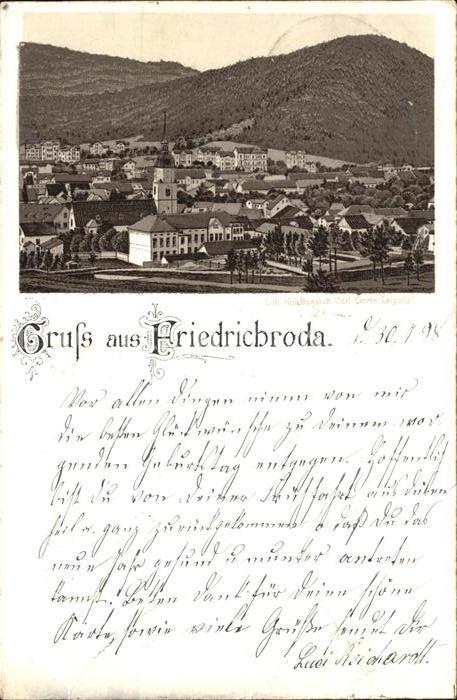 Lith. Kunstanstalt Carl Garte, Leipzig
Gruss aus Friedrichroda. d. 30. 98
Vor allen Dingen nimm von mir
die besten Glückwünsche zu Deinem mor-
genden Geburtstag entgegen. Hoffentlich
bist Du von Deiner Fahrt aus
heil u. ganz zurückgekommen u. daß Du das
neue Jahr gesund u. munter antreten
kannst. Besten Dank für Deine schöne
Karte, sowie viele Grüße sendet Dir
Reichardt.